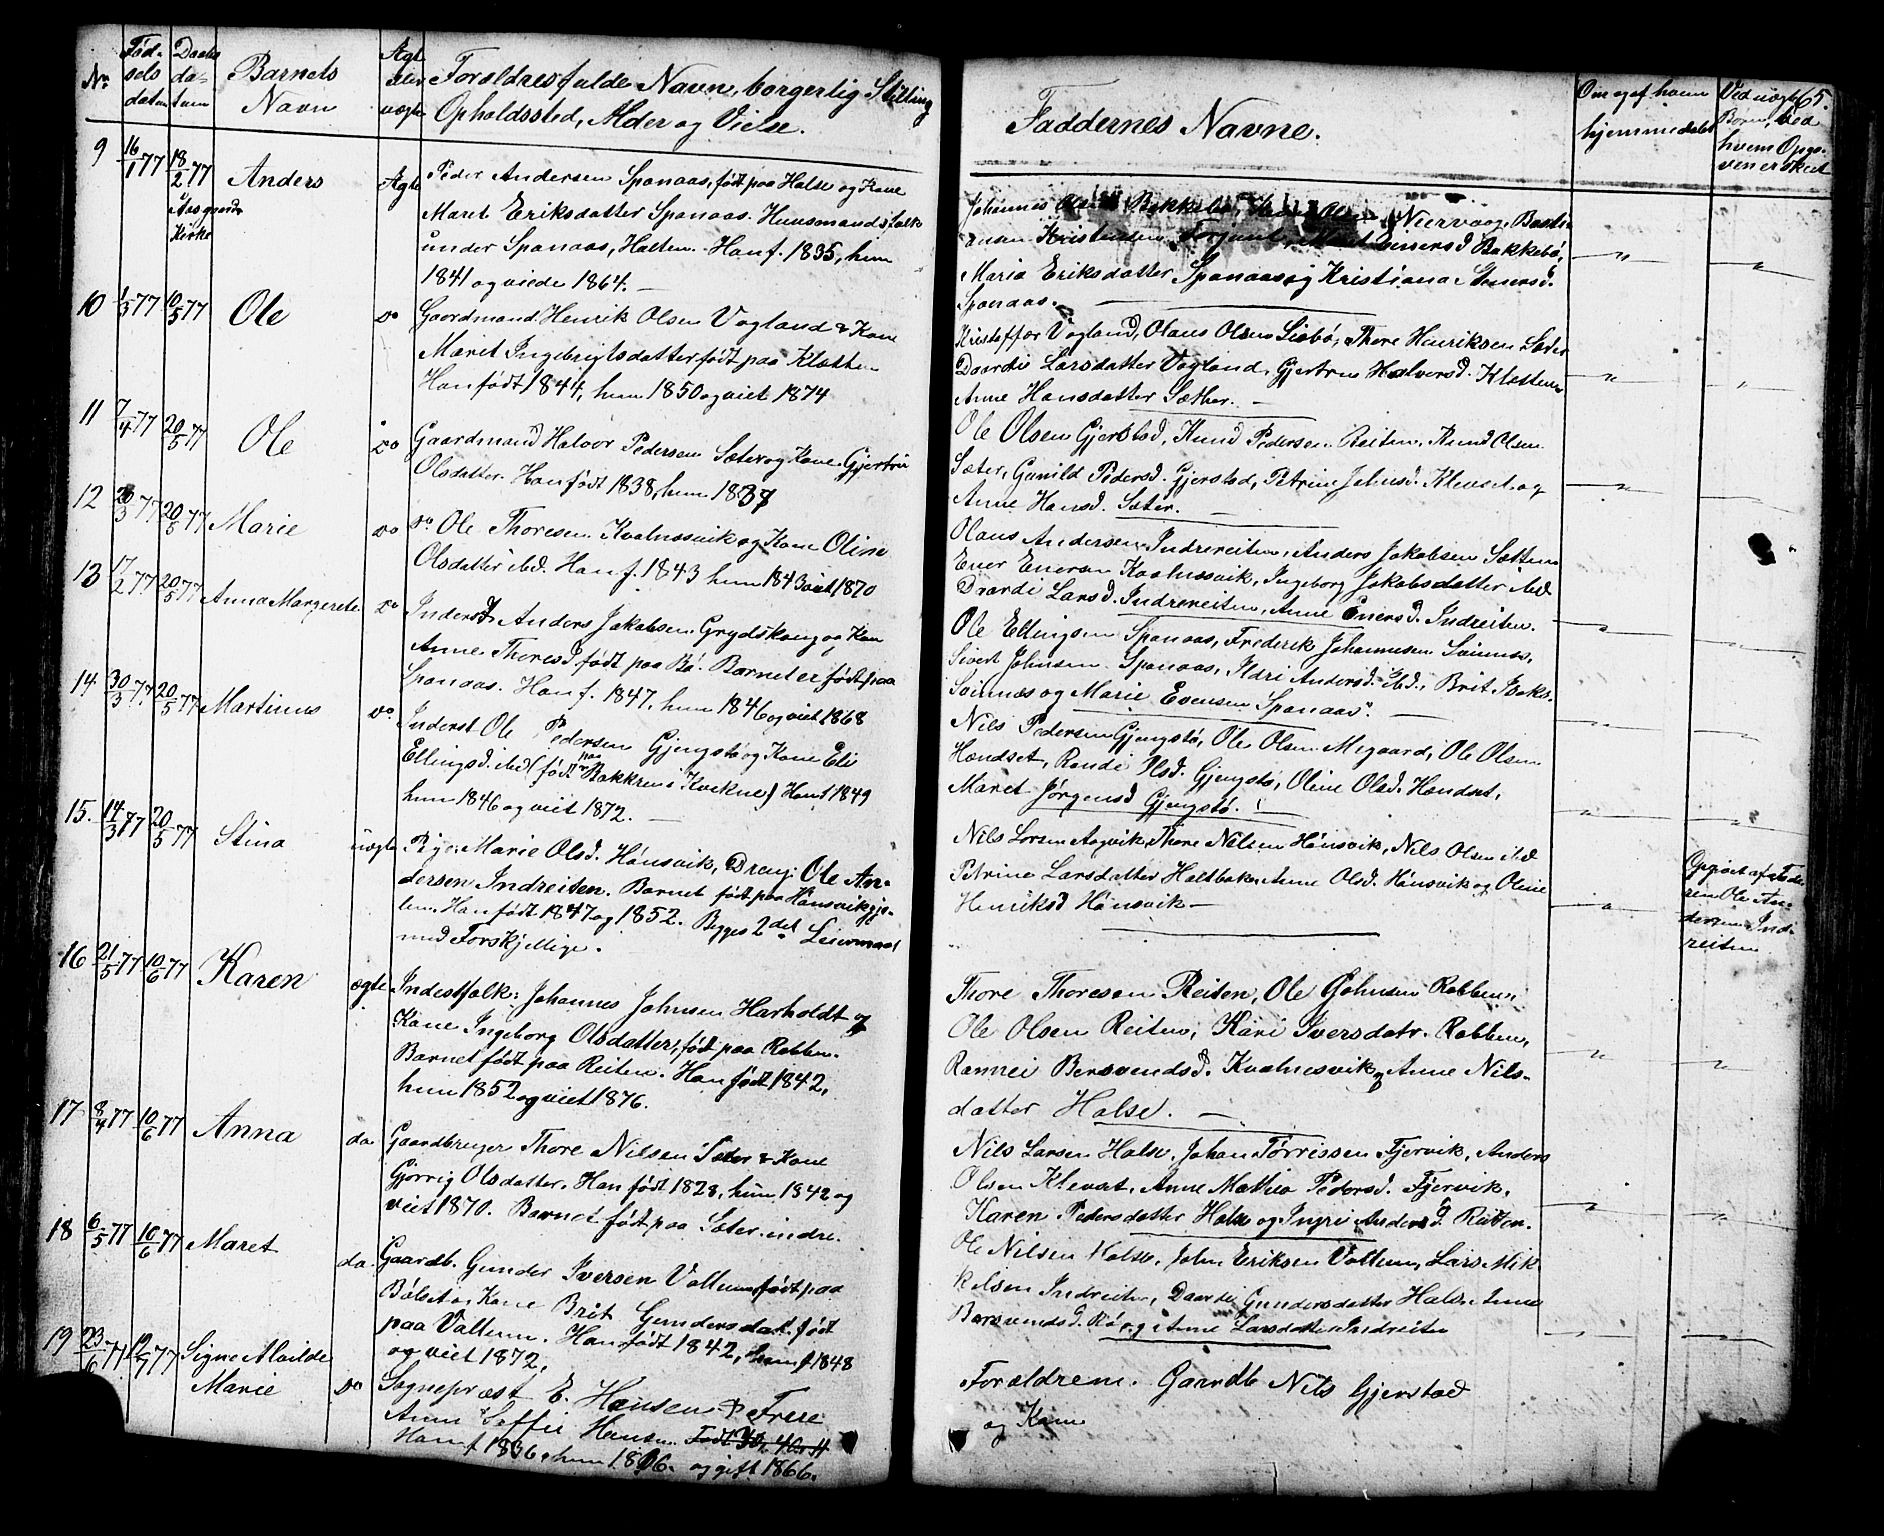 No.
Fødselsdatum
Daabsdatum
Barnets Navn
Ægte eller uægte
Forældres fulde Navn, borgerlig Stilling
Opholdssted, Alder og Vielse.
9 16/1 77 18/2 77 Anders Ægte
Aasgaards Kirke
Peder Andersen Spanaas, født paa Halse og Kone
Maret Eriksdatter Spanaas. Huusmandsfolk
under Spanaas, Halten. Han f. 1835, hun
1841 og viede 1864. —
10 1/3 77 10/5 77 Ole do
Gaardmand Henrik Olsen Vagland & Kone
Maret Ingebrigtsdatter født paa Kletten
Han født 1844, hun 1850 og viet 1874
11 7/4 77 20/5 77 Ole do
Gaardmand Halvor Pedersen Sæter og Kone Gjertru
Olsdatter. Han født 1838, hun 1837
12 20/3 77 20/5 77 Marie do
do Ole Thoresen Kvalnesvik og Kone Oline
Olsdatter ibd. Han f. 1843 hun 1843 viet 1870
13 17/2 77 20/5 77 Anna Margerete do
Inderst Anders Jakobsen Grydskaug og Kone
Anne Thoresd. født paa Bø. Barnet er født paa
Spanaas. Han f. 1847, hun 1846 og viet 1868
14 30/3 77 20/5 77 Martinus do
Inderst Ole Pedersen Gjengstø og Kone Eli
Ellingsd. ibd (født paa Bakken i Kvekne) Han f 1849
hun 1846 og viet 1872. —
15. 14/3 77 20/5 77 Stina uægte
Pige Marie Olsd. Hønsvik, Dreng: Ole An-
dersen Indreiten. Barnet født paa Hønsvikgje-
len. Han født 1847 og 1852. Begges 2det Leiermaal
med Forskjellige.
16 21/5 77 10/6 77 Karen ægte
Inderstfolk: Johannes Johnsen Harholdt og
Kone Ingeborg Olsdatter, født paa Robben.
Barnet født paa Reiten. Han født 1842,
hun 1852 og viet 1876.
17 8/4 77 10/6 77 Anna do.
Gaardbruger Thore Nilsen Sæter & Kone
Gjørrig Olsdatter. Han født 1828, hun 1842 og
viet 1870. Barnet født paa Sæter indre.
18 6/5 77 10/6 77 Maret do.
Gaardb. Gunder Iversen Valtum født paa
Bølset og Kone Brit Gundersdat. født
paa Valtum. Han født 1842, hun f 1848
og viet 1872.
19 23/6 77 12/7 77 Signe Mailde Marie do
Sognepræst E. Hansen & Frue
Anne Soffie Hansen
Han f 1836, hun 1836. og gift 1866.
Faddernes Navne.
Om og af hvem hjemmedøbt
Ved uægte Børn, ved hvem Opgiven er skeet
65.
Johannes Bakkebø, Olsen Niervaag, Basti-
ansen Kristensen Enersd Bakkebø,
Maria Eriksdatter Spanaas og Kristiana Enersd.
Spanaas.
Kristoffer Vagland, Olaus Olsen Liabø, Thore Henriksen Sæter
Daardi Larsdatter Vagland, Gjertrue Halversd. Klettene
Anne Hansdatter Sæther. —
Ole Olsen Gjerstad, Knud Pedersen Reiten, Knud Olsen
Sæter, Gunild Pedersd. Gjerstad, Petrine Johnsd. Klevset og
Anne Hansd. Sæter. —
Olaus Andersen Indrereiten, Anders Jakobsen Sætten
Ener Enersen Kvalnesvik, Ingeborg Jakobsdatter ibd
Drardi Larsd. Indrereiten, Anne Enersd. Indreiten.
Ole Ellingsen Spanaas, Frederik Johannesen Soinnes,
Sivert Johnsen Spanaas, Ildri Andersd. ibd., Brit Isaks.
Soinnes og Marie Evensen Spanaas. —
Nils Pedersen Gjengstø, Ole Olsen Megaard, Ole Olsen
Hendset, Rande Ilsd. Gjengstø, Oline Olsd. Hendset,
Maret Jørgensd Gjengstø.
Nils Larsen Aagvik, Thore Nilsen Hønsvik, Nils Olsen ibd
Petrine Larsdatter Haltbak, Anne Olsd. Hønsvik og Oline
Henriksd Hønsvik —
Opgivet af Faderen Ole Andersen Indreiten
Thore Thoresen Reiten, Ole Johnsen Robben,
Ole Olsen Reiten, Kari Iversdatr. Robben,
Rannei Bersvendsd. Kvalnesvik og Anne Nils-
datter Halse. —
Nils Larsen Halse, Johan Tørrissen Fjervik, Anders
Olsen Klevset, Anne Mathea Pedersd. Fjervik,
Karen Pedersdatter Halse og Ingri Andersd. Reiten.
Ole Nilsen Halse, John Eriksen Valtum, Lars Mik-
kelsen Indreiten, Daarde Gundersdatter Halse, Anne
Bersvendsd. Bø og Anne Larsdatter Indreiten
Forældrene. Gaardb Nils Gjerstad
og Kone